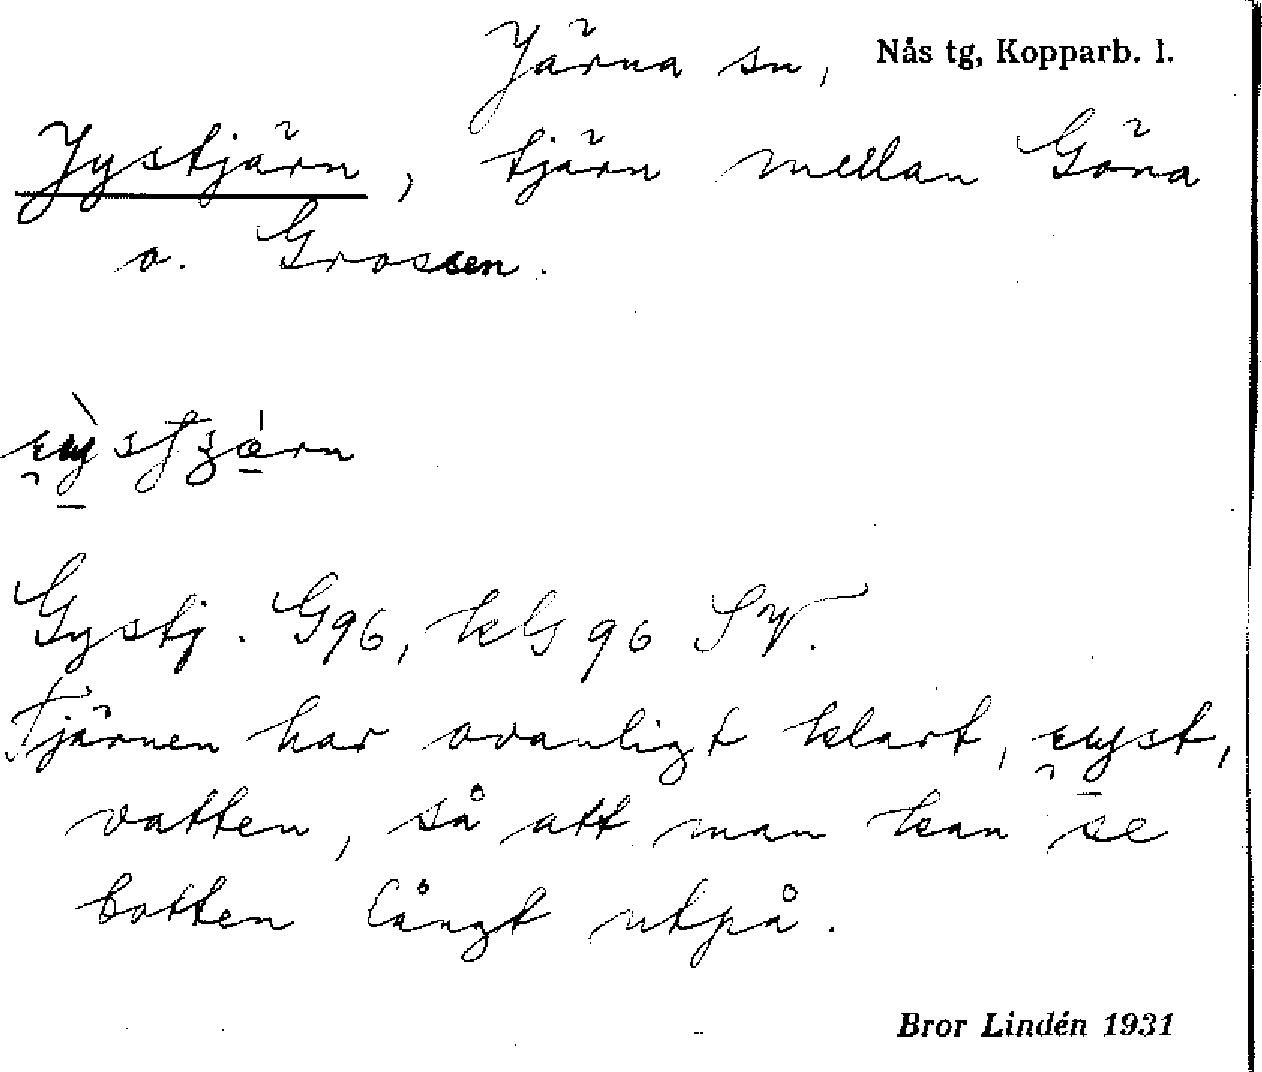 Järna sn, Nås tg, Kopparb. l.
Jystjärn, tjärn mellan Göna
o. Grossen.
Gystj. G96, kG 96 SV.
Tjärnen har ovanligt klart,
vatten, så att man kan se
botten långt utpå.
Bror Lindén 1931